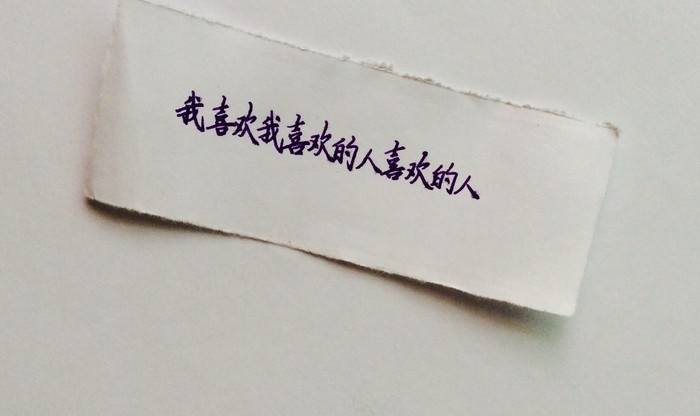 我喜欢我喜欢的人喜欢的人